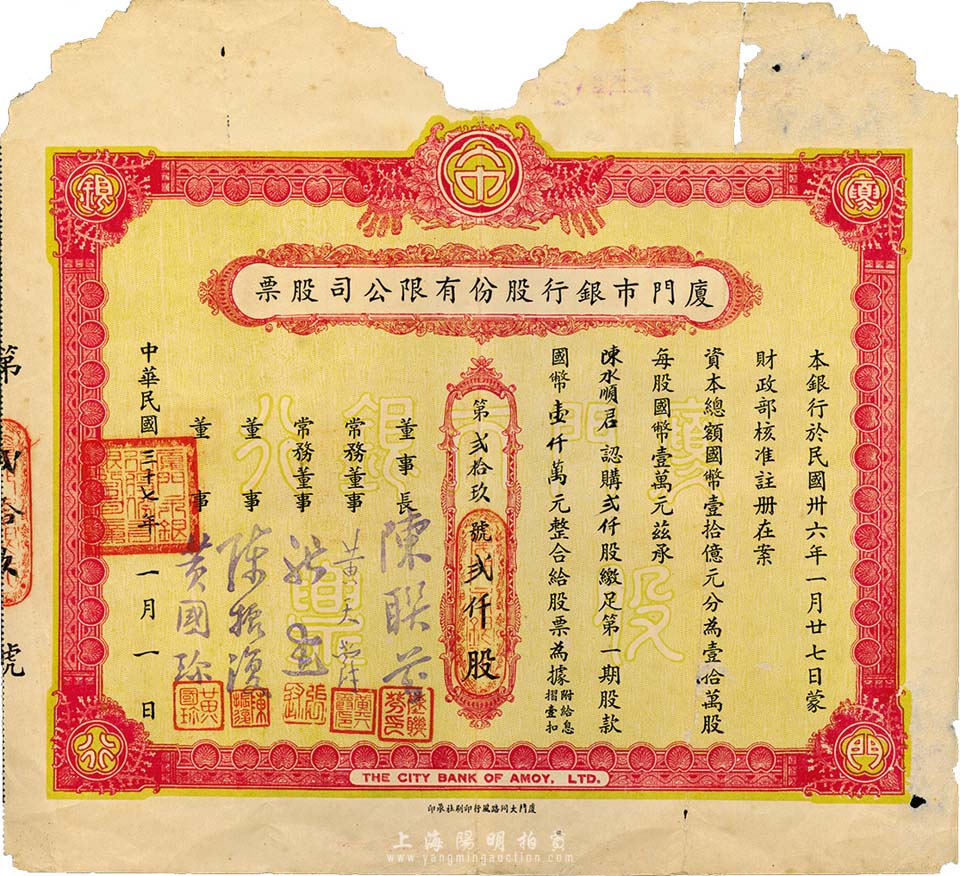 廈
銀
廈門市銀行股份有限公司股票
本銀行於民國卅六年一月廿七日蒙
財政部核准註册在案
資本總額國幣壹拾億元分為壹拾萬股
每股國幣壹萬元茲承
陳水順君 認購弍仟股繳足第一期股款
國幣壹仟萬元整合給股票為據 附給息摺壹扣
第弍拾玖號弍仟股
董事長 陳聯芬
常務董事
常務董事
董事 陳振源
董事 黃國珍
中華民國三十七年一月一日
廈門市銀行股票
第弍拾玖號
門
行
THE CITY BANK OF AMOY, LTD.
廈門大同路風行印刷社承印
上海陽明拍賣
www.yangmingauction.com